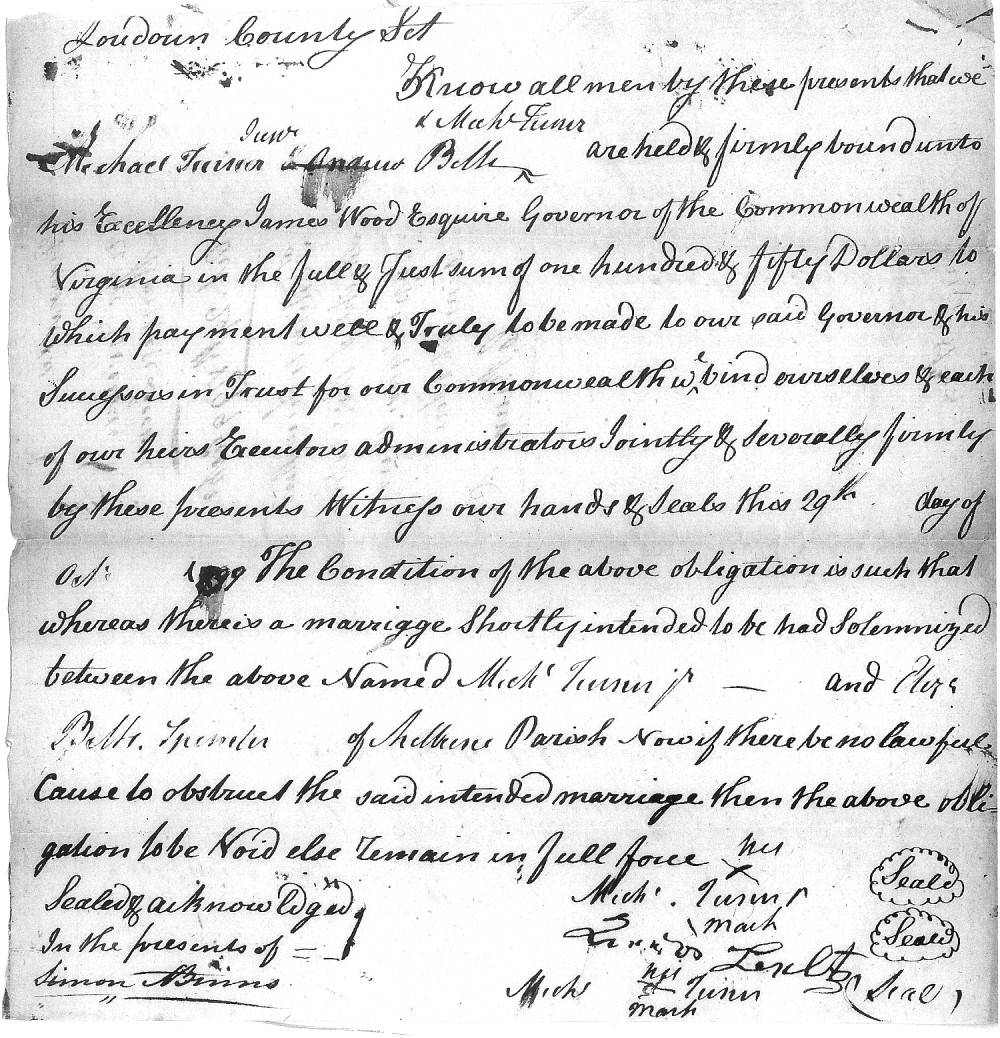 Loudoun County Sct
Know all men by these presents that we
Junr & Michl Turner
Michael Turner & Betts are held & firmly bound unto
his Excellency James Wood Esquire Governor of the Commonwealth of
Virginia in the full & Just sum of one hundred & fifty Dollars to
which payment well & Truly to be made to our said Governor & his
Successors in Trust for our Commonwealth we bind ourselves & each
of our heirs Executors administrators Jointly & Severally firmly
by these presents Witness our hands & Seals this 29th day of
Octr 1799 The Condition of the above obligation is such that
whereas there is a marriage Shortly intended to be had Solemnized
between the above Named Michl Turner Jr — and Eliza
Betts. Spinster of Parish Now if there be no lawful
Cause to obstruct the said intended marriage then the above obli-
gation to be Void else remain in full force
Sealed & acknowledged
In the presents of
Simon Binns
his
Michl. X Turner Jr Seald
mark
Seald
his
Michl Turner (Seal)
mark